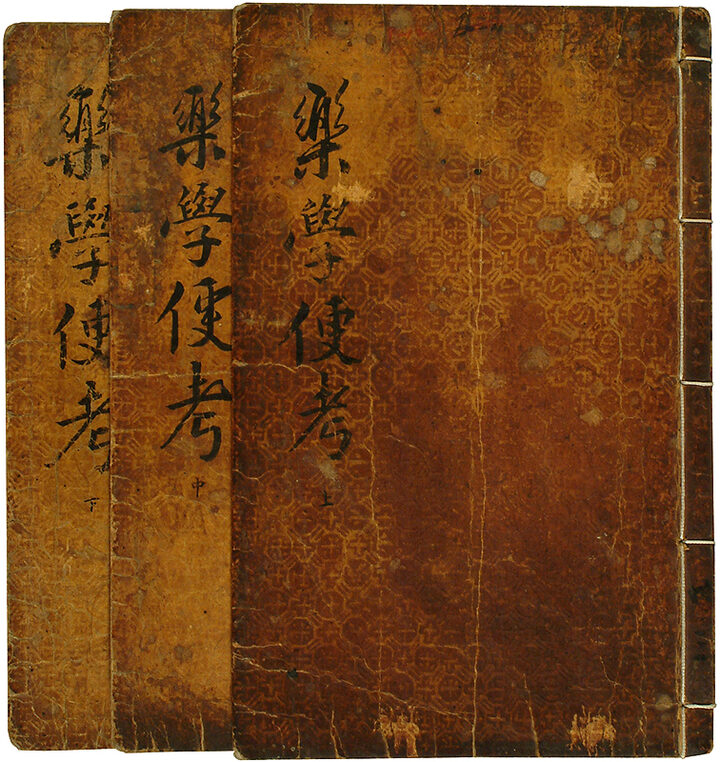 樂學便考
上
樂學便考
中
樂學便考
下